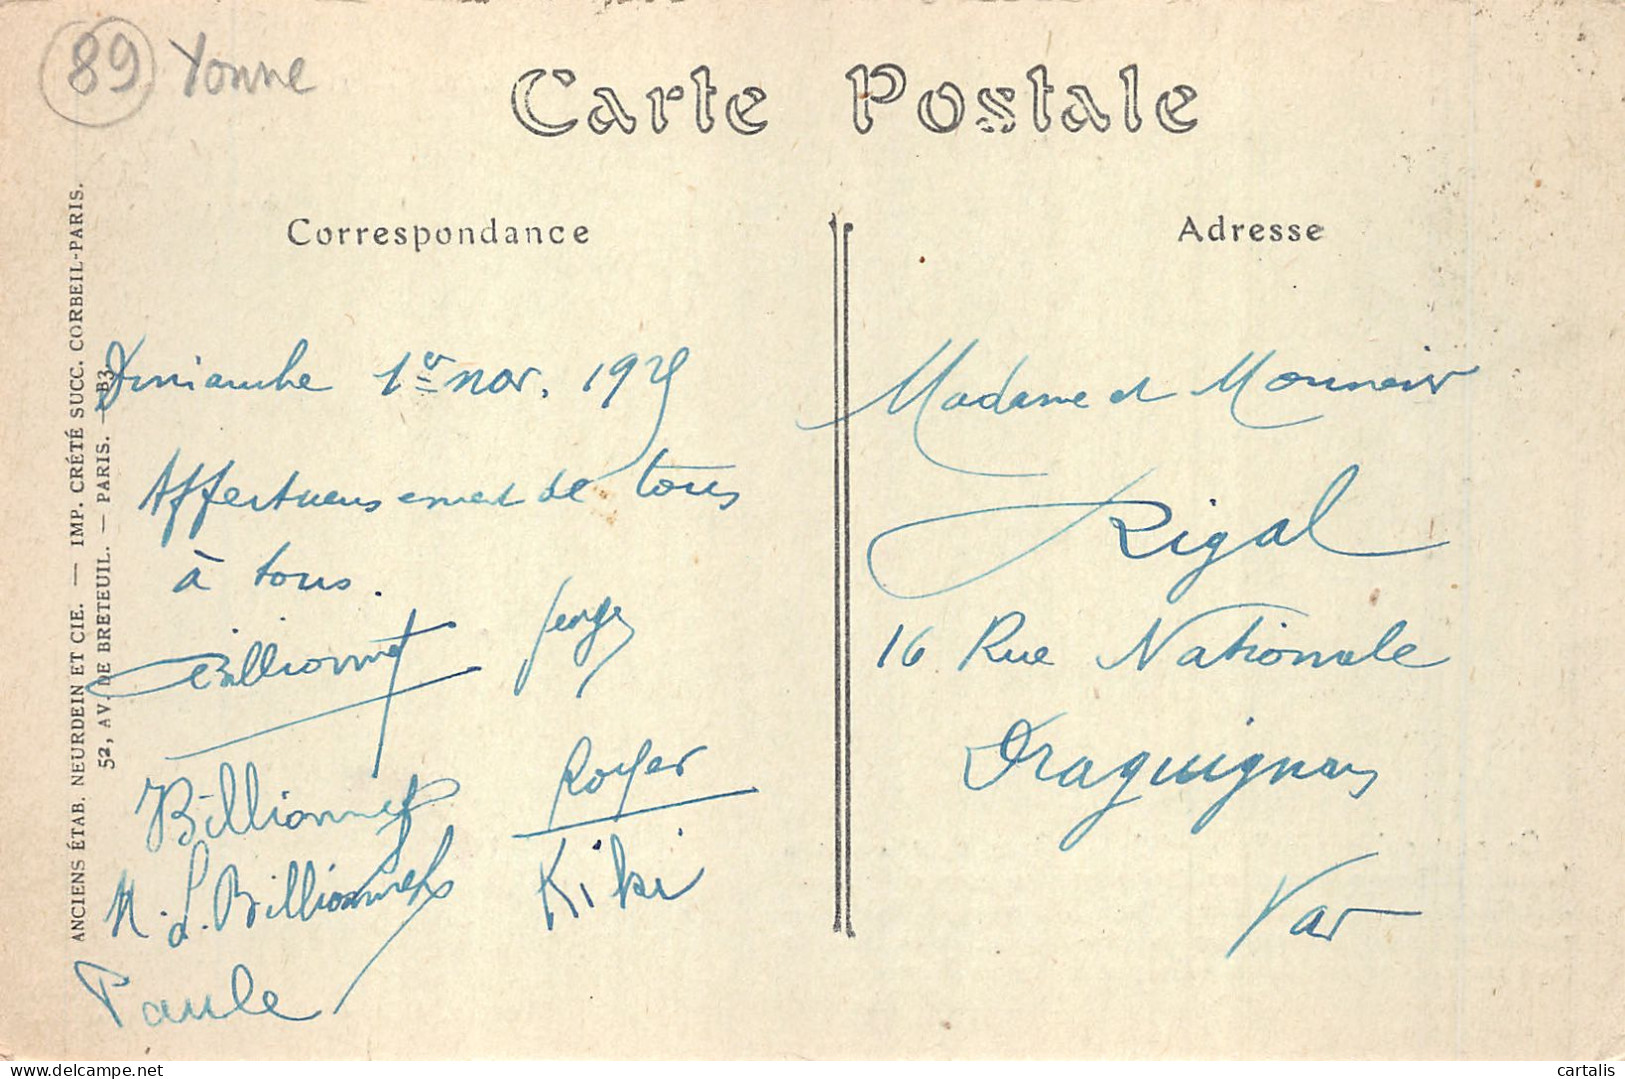 89 Yonne
Carte Postale
Correspondance
Adresse
ANCIENS ÉTAB. NEURDEIN ET CIE. — IMP. CRÉTÉ SUCC. CORBEIL-PARIS.
52, AV. DE BRETEUIL. — PARIS. — B3.
Dimanche 1er nov. 1925
Affectueusement de tous
à tous.
Billionnet
Billionnet
Royer
M. L. Billionnet
Kiki
Paule
Madame et Monsieur
Rigal
16 Rue Nationale
Draguignan
Var
cartalis
delcampe.net